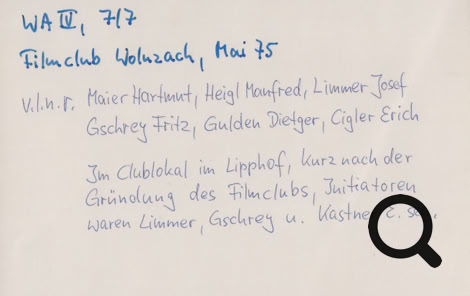 WA IV, 7/7
Filmclub Wolnzach, Mai 75
v.l.n.r. Maier Hartmut, Heigl Manfred, Limmer Josef
Gschrey Fritz, Gulden Dietger, Cigler Erich
Im Clublokal im Lipphof, kurz nach der
Gründung des Filmclubs, Initiatoren
waren Limmer, Gschrey u. Kastne